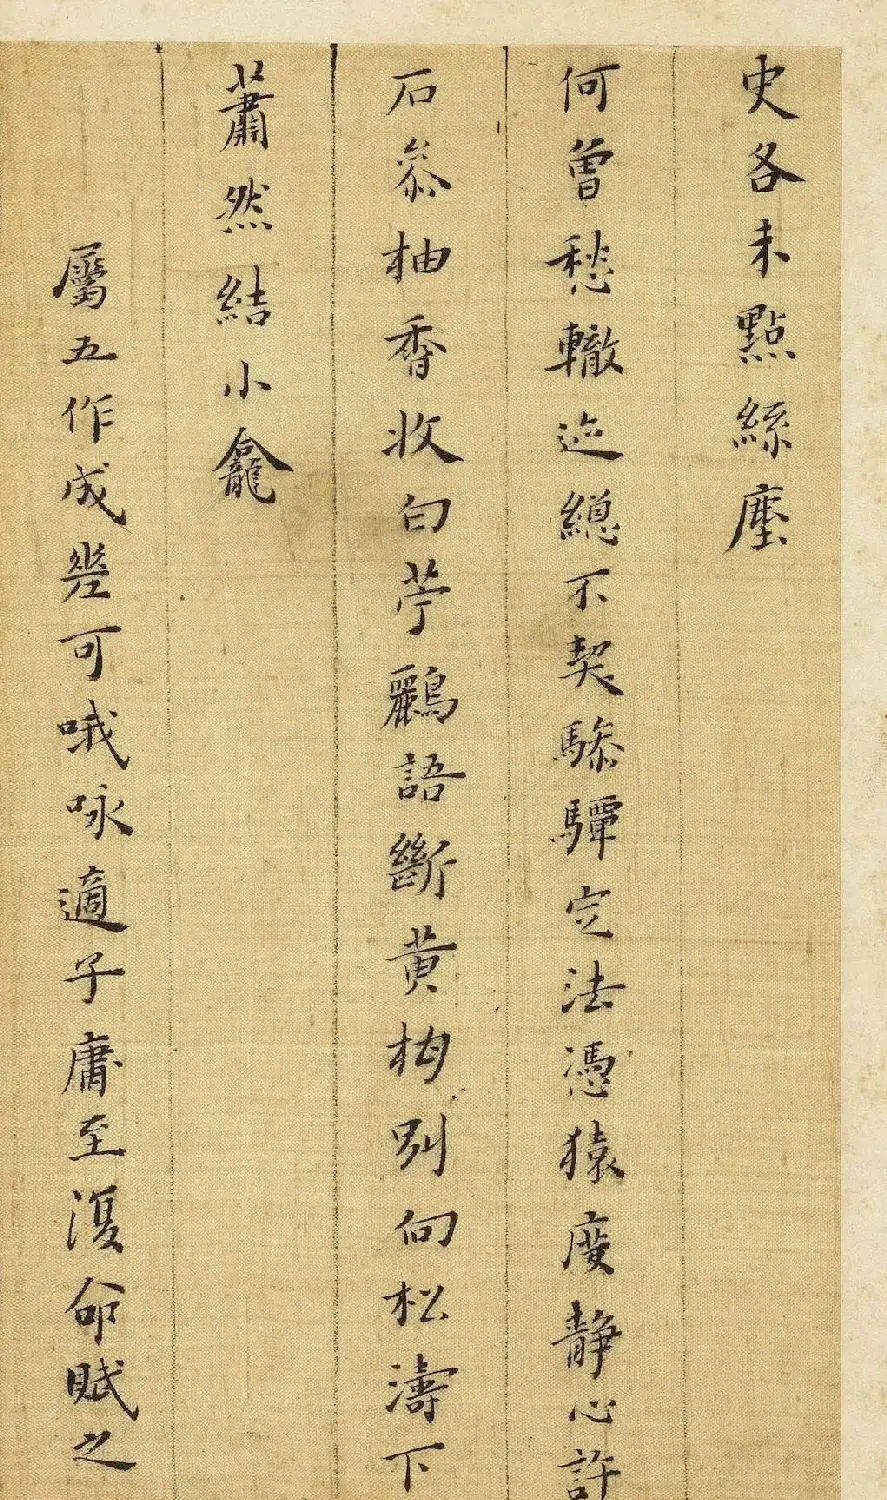 史各未點絲塵
何曾愁轍迹總不契驂驔定法憑猿度靜心許
石參柚香收白苧鸝語斷黃梅別向松濤下
蕭然結小龕
屬五作成㘴可哦咏適子庸至復命賦之